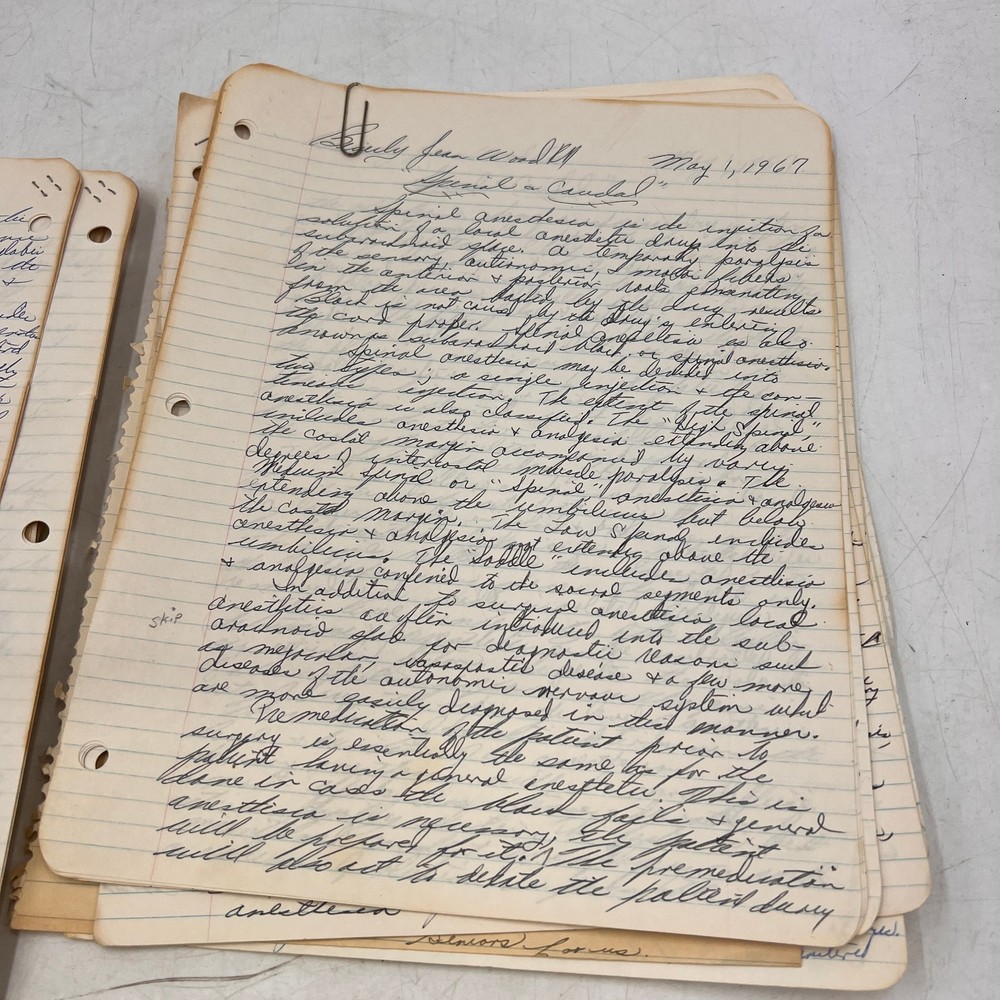 Jean Wood RN May 1, 1967
"Spinal & Caudal"
Spinal anesthesia is the injection of a
solution of a local anesthetic drug into the
subarachnoid space. A temporary paralysis
of the sensory, autonomic, & motor fibers
in the anterior & posterior roots emanating
from the area bathed by the drug results
Block is not cause by the drug entering
the cord proper. Spinal anesthesia is also
known as subarachnoid block, or spinal anesthesia.
Spinal anesthesia may be divided into
two types; a single injection & the con-
tinuous injection. The extent of the spinal
anesthesia is also classified. The "High Spinal,"
includes anesthesia & analgesia extending above
the costal margin accompanied by varying
degrees of intercostal muscle paralysis. The
Medium Spinal or "Spinal," anesthesia & analgesia
extending above the umbilicus but below
the costal margin. The Low Spinal includes
anesthesia & analgesia not extending above the
umbilicus. The "Saddle" includes anesthesia
& analgesia confined to the sacral segments only.
In addition to surgical anesthesia, local
skip
anesthetics are often introduced into the sub-
arachnoid space for diagnostic reasons such
as vasospastic disease & a few more
diseases of the autonomic nervous system which
are more easily diagnosed in this manner.
Premedication of the patient prior to
surgery is essentially the same as for the
patient having a general anesthetic. This is
done in cases the block fails & general
anesthesia is necessary, the patient
will be prepared for it. The premedication
will also act to sedate the patient during
anesthesia
Seniors for us.